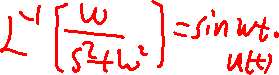 L⁻¹ [ w / (s² + w²) ] = sin wt.
u(t)